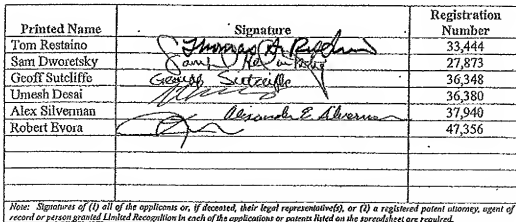 Printed Name Signature Registration Number
Tom Restaino Thomas A. Restaino 33,444
Sam Dworetsky Sam 27,873
Geoff Sutcliffe Geoffrey Sutcliffe 36,348
Umesh Desai 36,380
Alex Silverman Alexander E. Silverman 37,940
Robert Evora 47,356
Note: Signatures of (1) all of the applicants or, if deceased, their legal representative(s), or (2) a registered patent attorney, agent of
record or person granted Limited Recognition in each of the applications or patents listed on the spreadsheet are required.